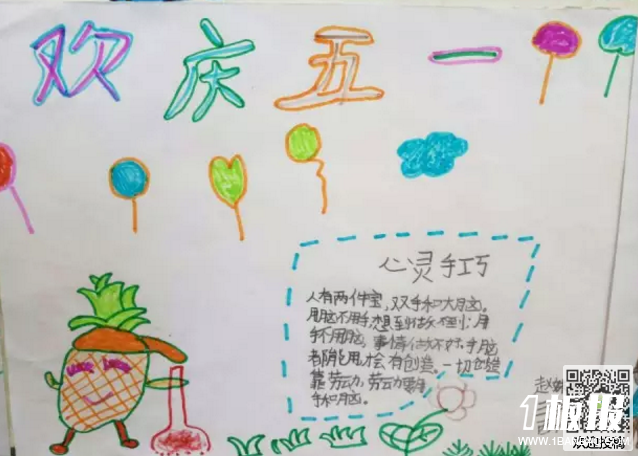 欢庆五一
心灵手巧
人有两件宝，双手和大脑。
用脑不用手想到做不到；用
手不用脑，事情做不好。手脑
都能用才会有创造。一切创造
靠劳动，劳动要用
手和脑。
赵
1板报
WWW.1BANBAO.COM
欢迎投稿